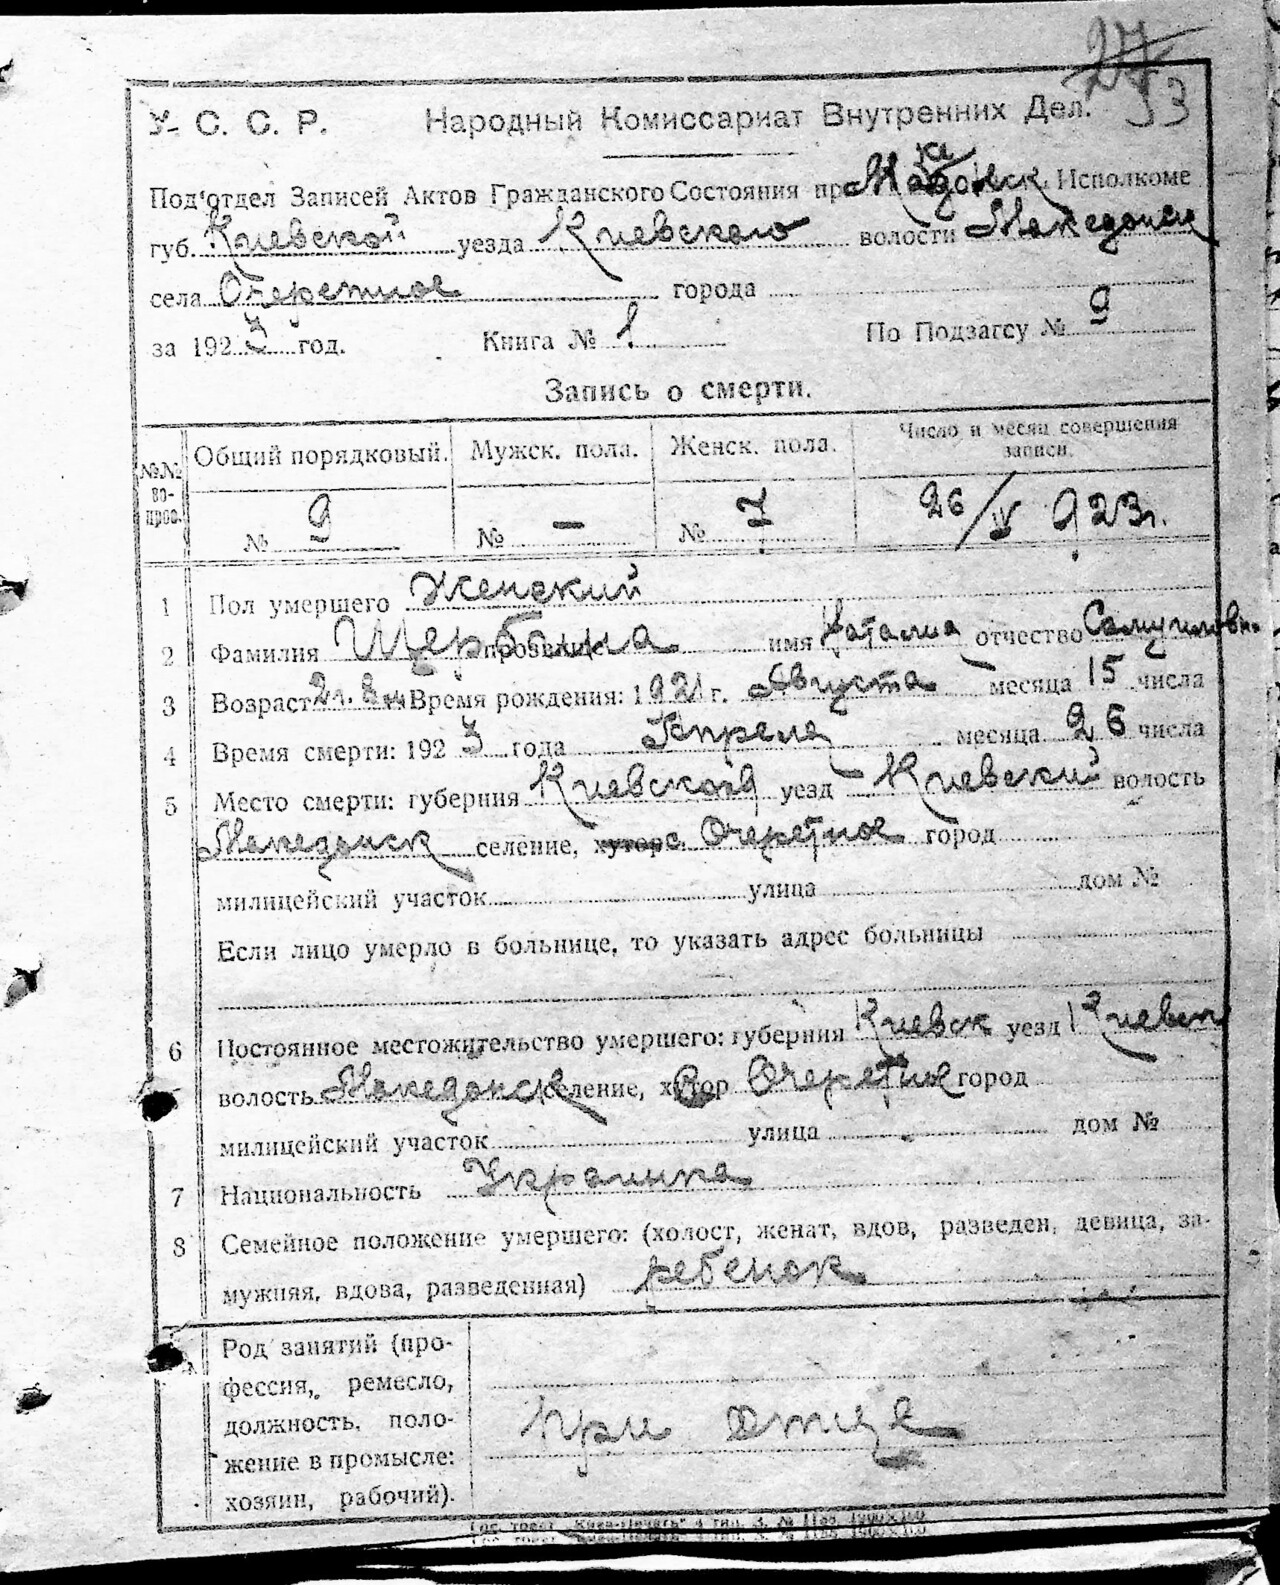 27
53
У. С. С. Р. Народный Комиссариат Внутренних Дел.
Под'отдел Записей Актов Гражданского Состояния при Исполкоме
губ. Киевской уезда Киевского волости Македонск
села Очеретное города
за 1923 год. Книга № 1 По Подзагсу № 9
Запись о смерти.
№№ во- прос. Общий порядковый. Мужск. пола. Женск. пола. Число и месяц совершения записи.
№ 9 № — № 7 26/IV 923г.
1 Пол умершего Женский
2 Фамилия прозвище Щербина имя Наталия отчество Самуиловн
3 Возраст 2г. 8 м Время рождения: 1921 г. Августа месяца 15 числа
4 Время смерти: 1923 года Апреля месяца 26 числа
5 Место смерти: губерния Киевской уезд Киевский волость
Македонск селение, хутор Очеретное город
милицейский участок улица дом №
Если лицо умерло в больнице, то указать адрес больницы
6 Постоянное местожительство умершего: губерния Киевск уезд Киевск
волость Македонск селение, хутор Очеретное город
милицейский участок улица дом №
7 Национальность Украинка
8 Семейное положение умершего: (холост, женат, вдов, разведен, девица, за-
мужняя, вдова, разведенная) ребенок
Род занятий (про-
фессия, ремесло,
должность, поло-
жение в промысле:
хозяин, рабочий).
при отце